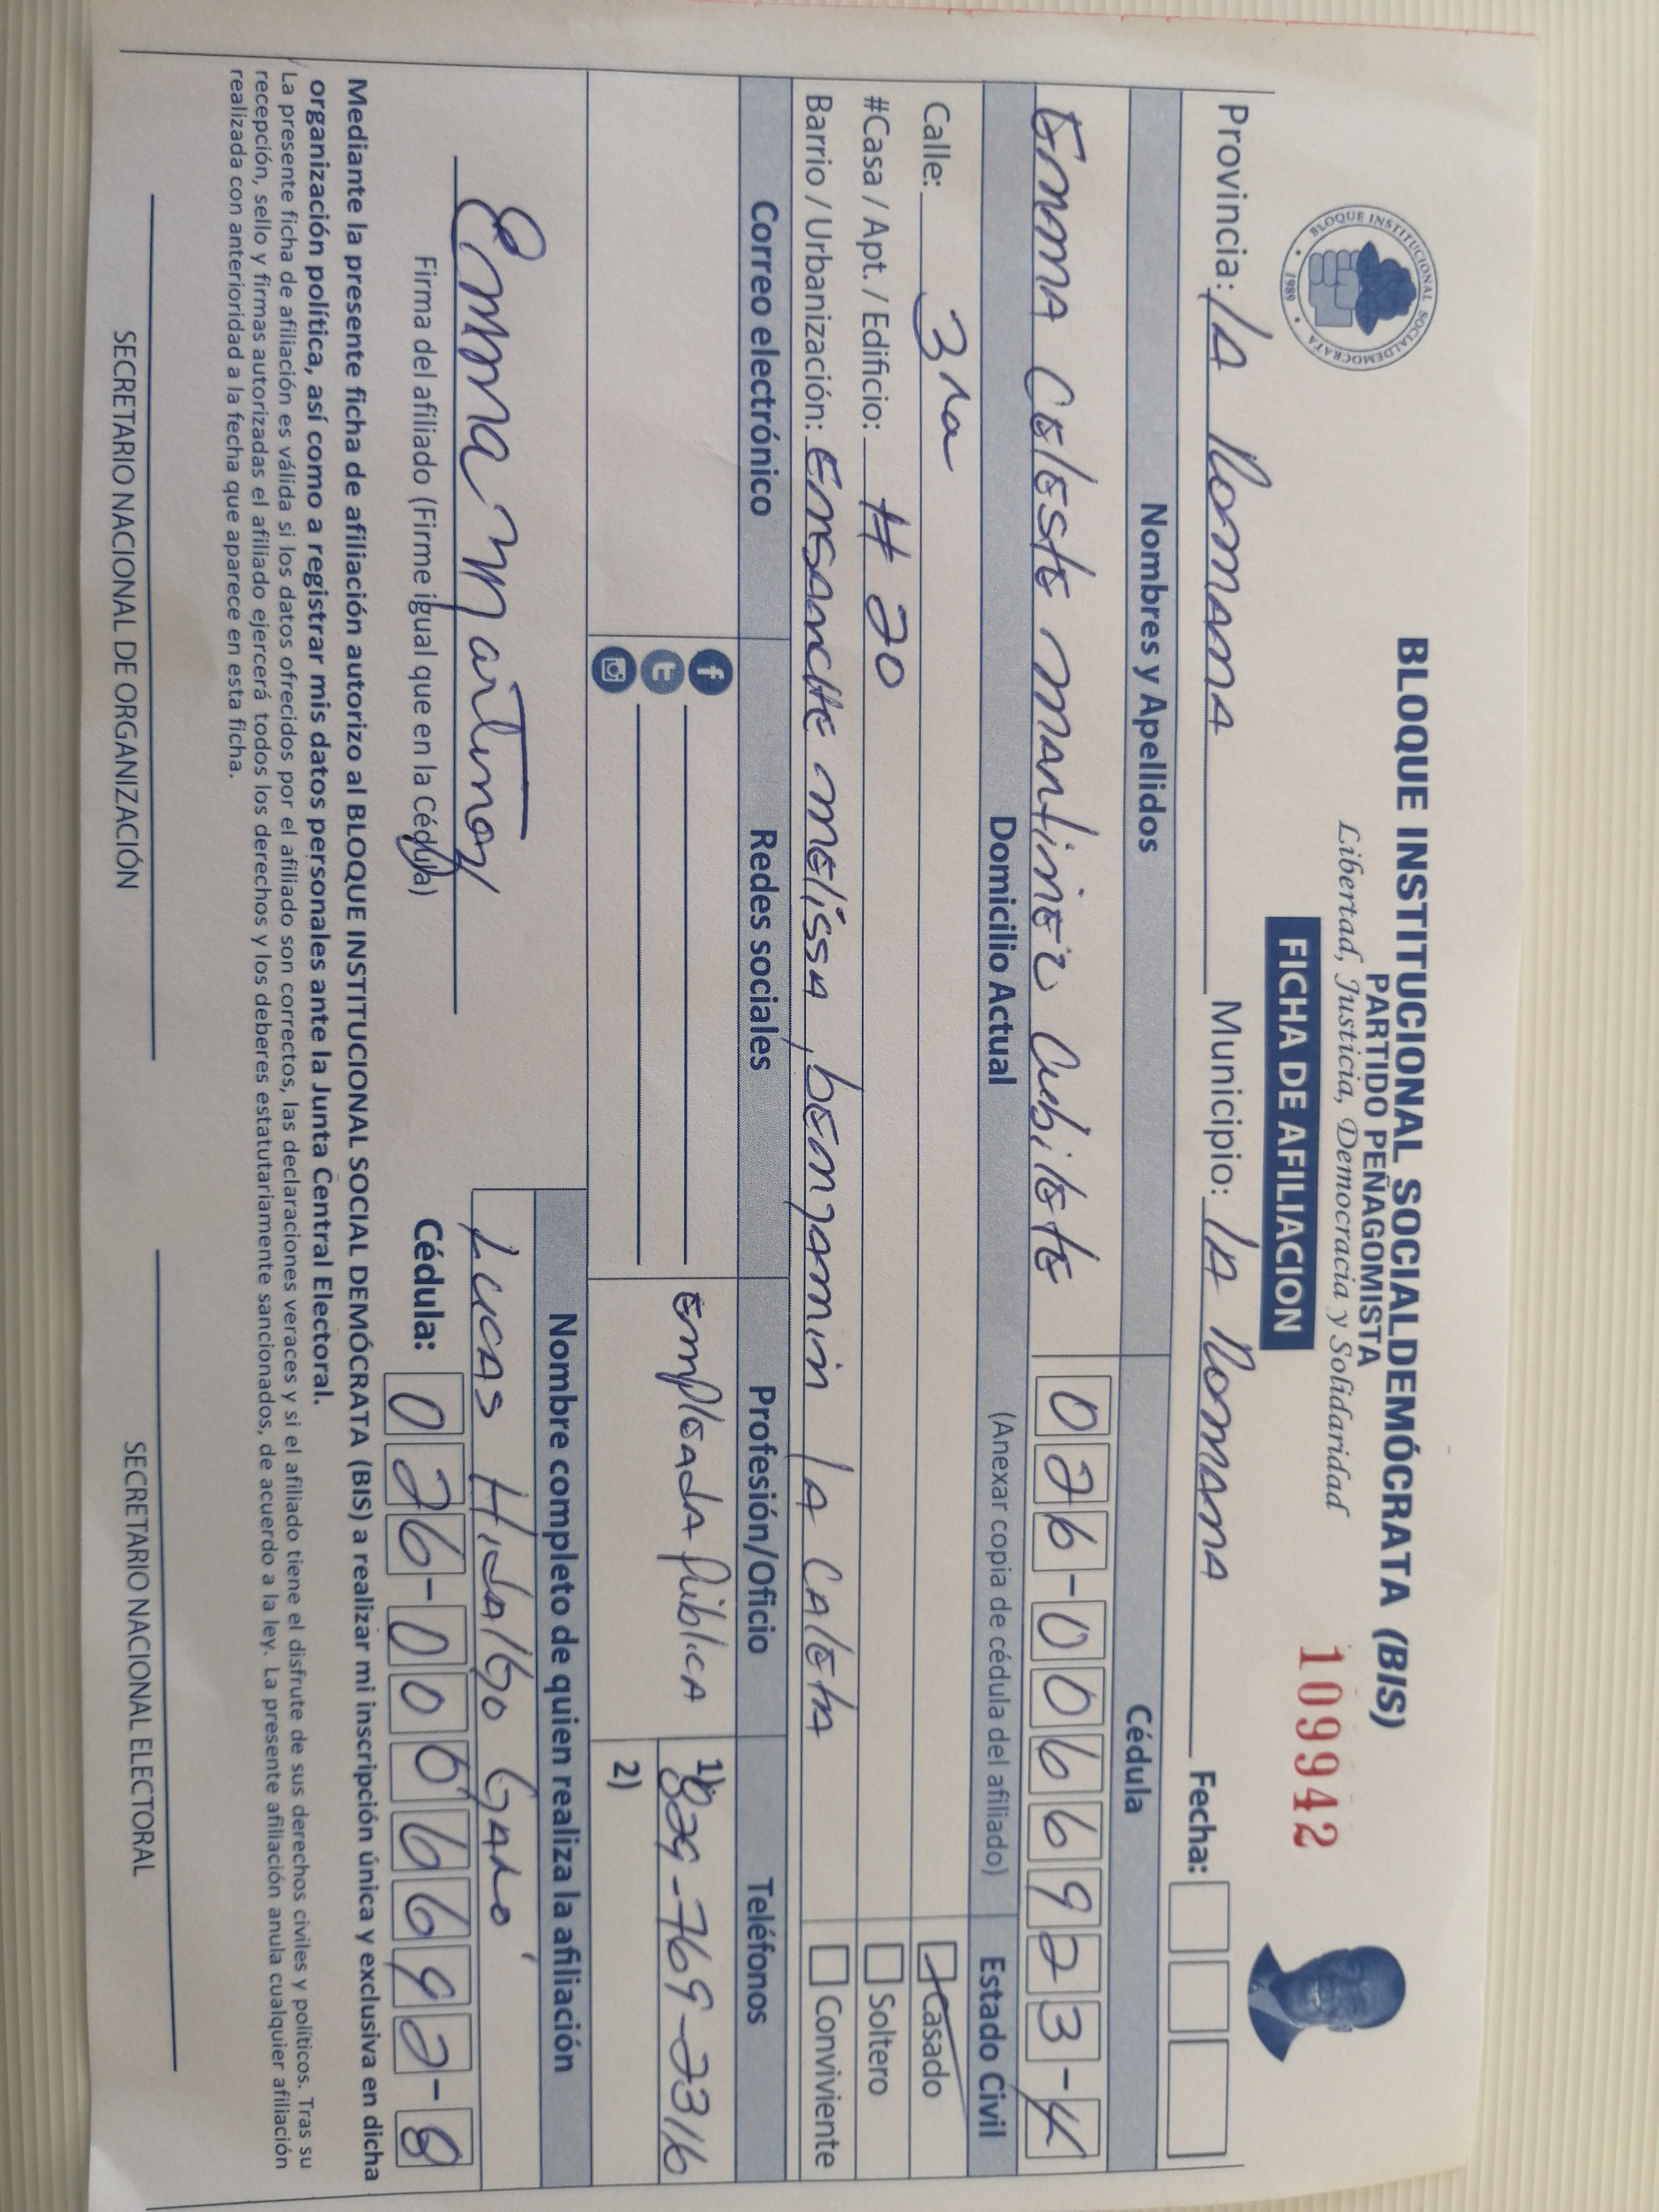 BLOQUE INSTITUCIONAL SOCIALDEMÓCRATA (BIS)
PARTIDO PEÑAGOMISTA
Libertad, Justicia, Democracia y Solidaridad
FICHA DE AFILIACION
109942
BLOQUE INSTITUCIONAL SOCIALDEMOCRATA
1989
Provincia: LA ROMANA Municipio: LA ROMANA Fecha:
Nombres y Apellidos Cédula
Emma Celeste Martinez Cubilete 026-0066923-4
Domicilio Actual (Anexar copia de cédula del afiliado) Estado Civil
Calle: 3ra Casado
#Casa / Apt. / Edificio: # 20 Soltero
Barrio / Urbanización: Ensanche Melissa, benjamin LA CALETA Conviviente
Correo electrónico Redes sociales Profesión/Oficio Teléfonos
Empleada Publica 1) 829-769-2316
2)
Nombre completo de quien realiza la afiliación
Emma Martinez Lucas Hidalgo
Firma del afiliado (Firme igual que en la Cédula) Cédula: 026-0066692-8
Mediante la presente ficha de afiliación autorizo al BLOQUE INSTITUCIONAL SOCIAL DEMÓCRATA (BIS) a realizar mi inscripción única y exclusiva en dicha
organización política, así como a registrar mis datos personales ante la Junta Central Electoral.
La presente ficha de afiliación es válida si los datos ofrecidos por el afiliado son correctos, las declaraciones veraces y si el afiliado tiene el disfrute de sus derechos civiles y políticos. Tras su
recepción, sello y firmas autorizadas el afiliado ejercerá todos los derechos y los deberes estatutariamente sancionados, de acuerdo a la ley. La presente afiliación anula cualquier afiliación
realizada con anterioridad a la fecha que aparece en esta ficha.
SECRETARIO NACIONAL DE ORGANIZACIÓN SECRETARIO NACIONAL ELECTORAL